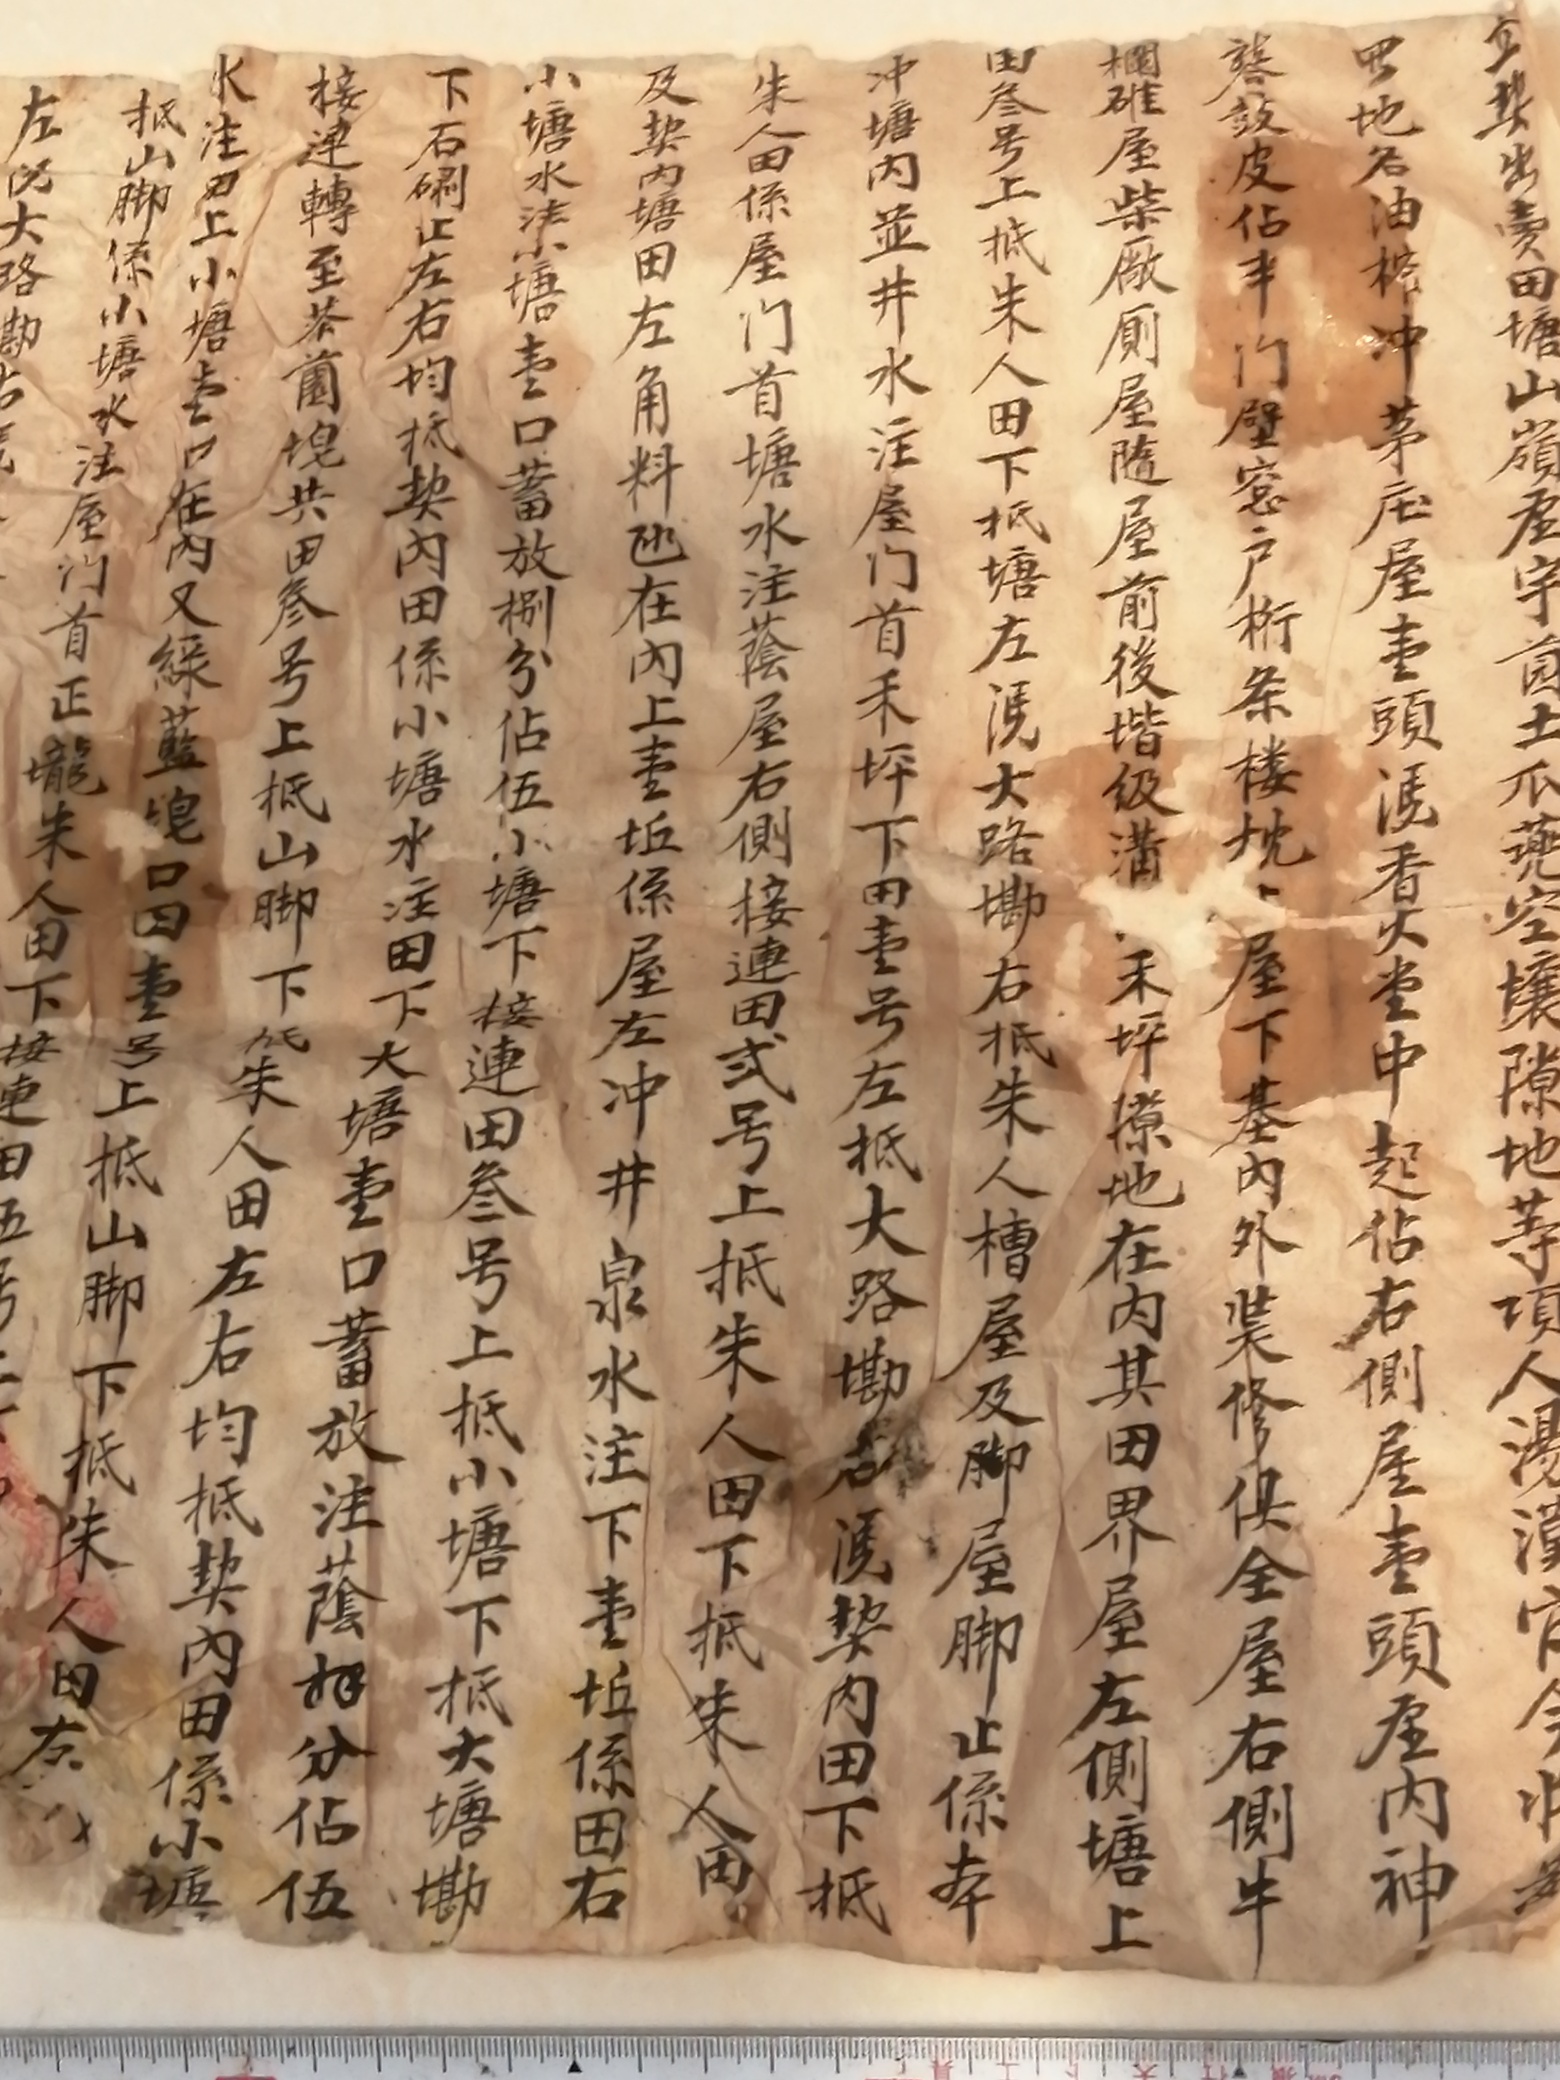 立契出賣田塘山嶺屋宇園土瓜蔬空壤隙地等項人湯漢官今將
地名油榨冲茅庄屋壹頭凴香火堂中起佔右側屋壹頭屋内神
龕鼓皮佔半门壁窓户桁条楼枕上屋下基内外裝修俱全屋右側牛
欄碓屋柴厰厠屋隨屋前後堦級溝禾坪㙩地在内其田界屋左側塘上
田叁号上抵朱人田下抵塘左凴大路墈右抵朱人槽屋及脚屋脚止係本
冲塘内並井水注屋门首禾坪下田壹号左抵大路墈右凴契内田下抵
朱人田係屋门首塘水注蔭屋右側接連田弍号上抵朱人田下抵朱人田
及契内塘田左角料在内上壹坵係屋左冲井泉水注下壹坵係田右
小塘水注小塘壹口蓄放捌分佔伍小塘下接連田叁号上抵小塘下抵大塘墈
下石磡止左右均抵契内田係小塘水注田下大塘壹口蓄放注蔭捌分佔伍
接連轉至茶薗塊共田叁号上抵山脚下抵朱人田左右均抵契内田係小塘
水注田上小塘壹口在内又綵藍塊口田壹号上抵山脚下抵朱人田左
抵山脚係小塘水注屋门首正壠朱人田下接連田五号上
左凴大路墈右凴